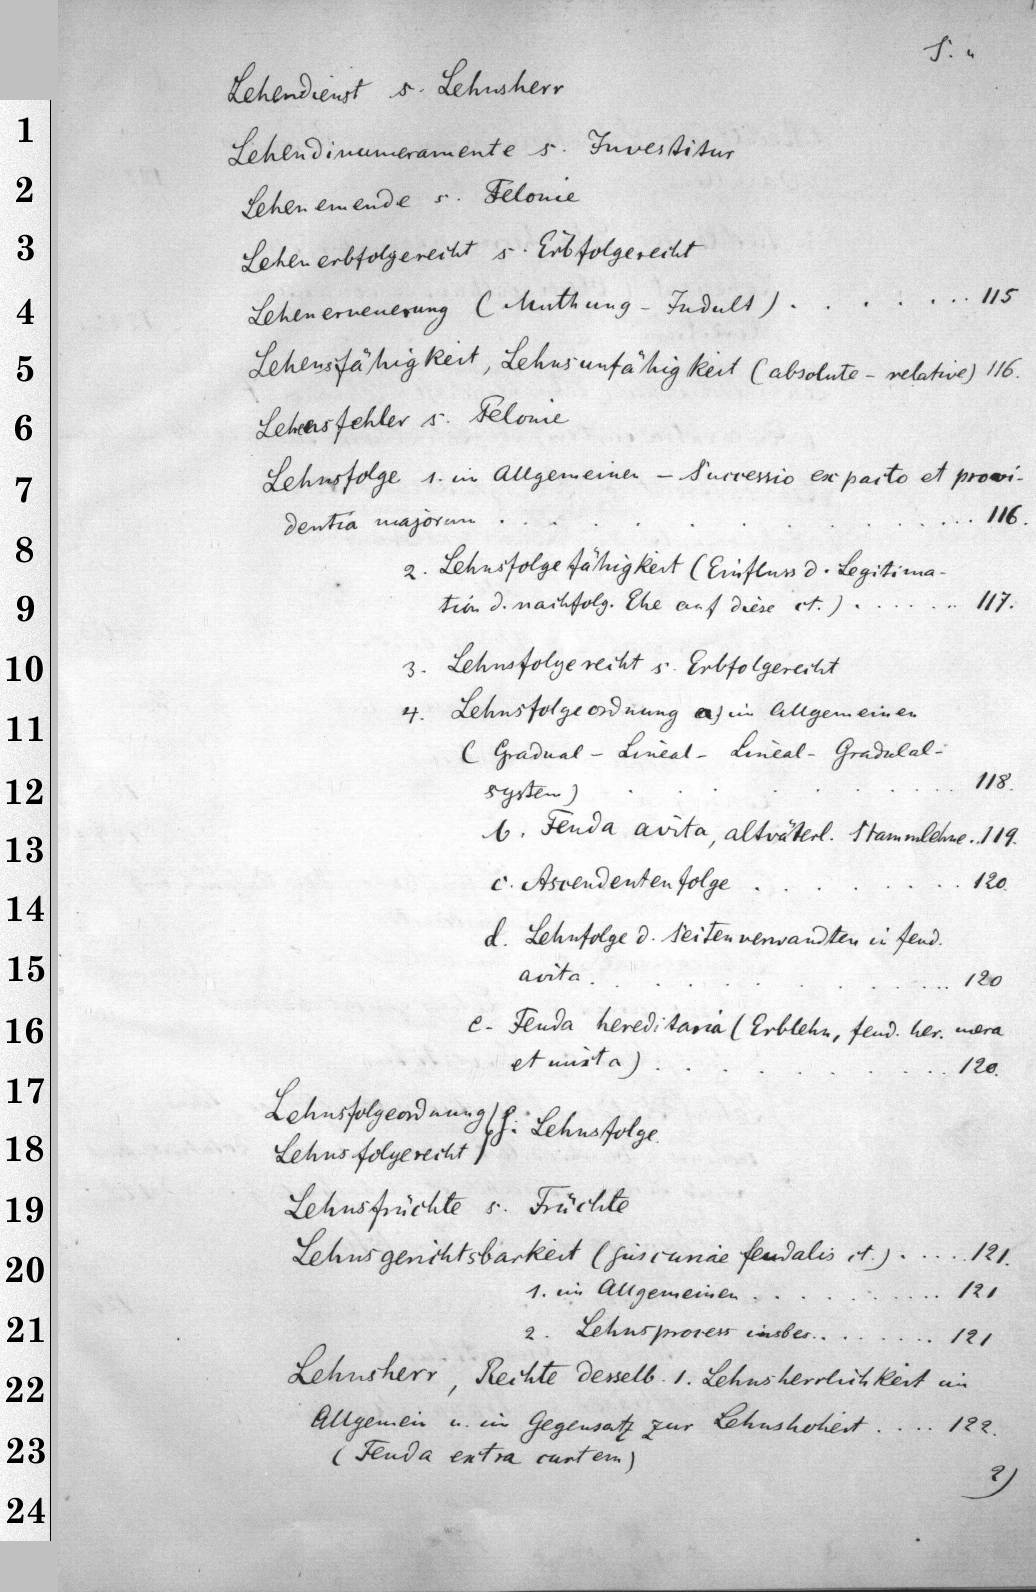 S. "
Lehendienst s. Lehnsherr
Lehendinumeramente s. Investitur
Lehenemende s. Felonie
Lehenerbfolgerecht s. Erbfolgerecht
Lehenerneuerung (Muthung - Indult) . . . . . . . 115
Lehensfähigkeit, Lehnsunfähigkeit (absolute - relative) 116.
Lehensfehler s. Felonie
Lehnsfolge 1. im Allgemeinen - Successio ex pacto et provi-
dentia majorum . . . . . . . . . . . . 116.
2. Lehnsfolgefähigkeit (Einfluss d. Legitima-
tion d. nachfolg. Ehe auf diese ct.) . . . . . . 117.
3. Lehnsfolgerecht s. Erbfolgerecht
4. Lehnsfolgeordnung a) im Allgemeinen
(Gradual - Lineal - Lineal - Gradulal-
system) . . . . . . . . . . 118.
b. Feuda avita, altväterl. Stammlehne . . 119.
c. Ascendentenfolge . . . . . . . . 120.
d. Lehnfolge d. Seitenverwandten in feud.
avita . . . . . . . . . . 120
e - Feuda hereditaria (Erblehn, feud. her. mera
et mixta) . . . . . . . . . . 120.
Lehnsfolgeordnung } s: Lehnsfolge.
Lehnsfolgerecht
Lehnsfrüchte s. Früchte
Lehnsgerichtsbarkeit (jus curiae feudalis ct.) . . . . . 121.
1. im Allgemeinen . . . . . . . . . 121
2. Lehnsprocess insbes. . . . . . . . 121
Lehnsherr, Rechte desselb. 1. Lehnsherrlichkeit im
Allgemein u. im Gegensatz zur Lehnshoheit . . . . 122.
(Feuda extra curtem)
2)
1
2
3
4
5
6
7
8
9
10
11
12
13
14
15
16
17
18
19
20
21
22
23
24